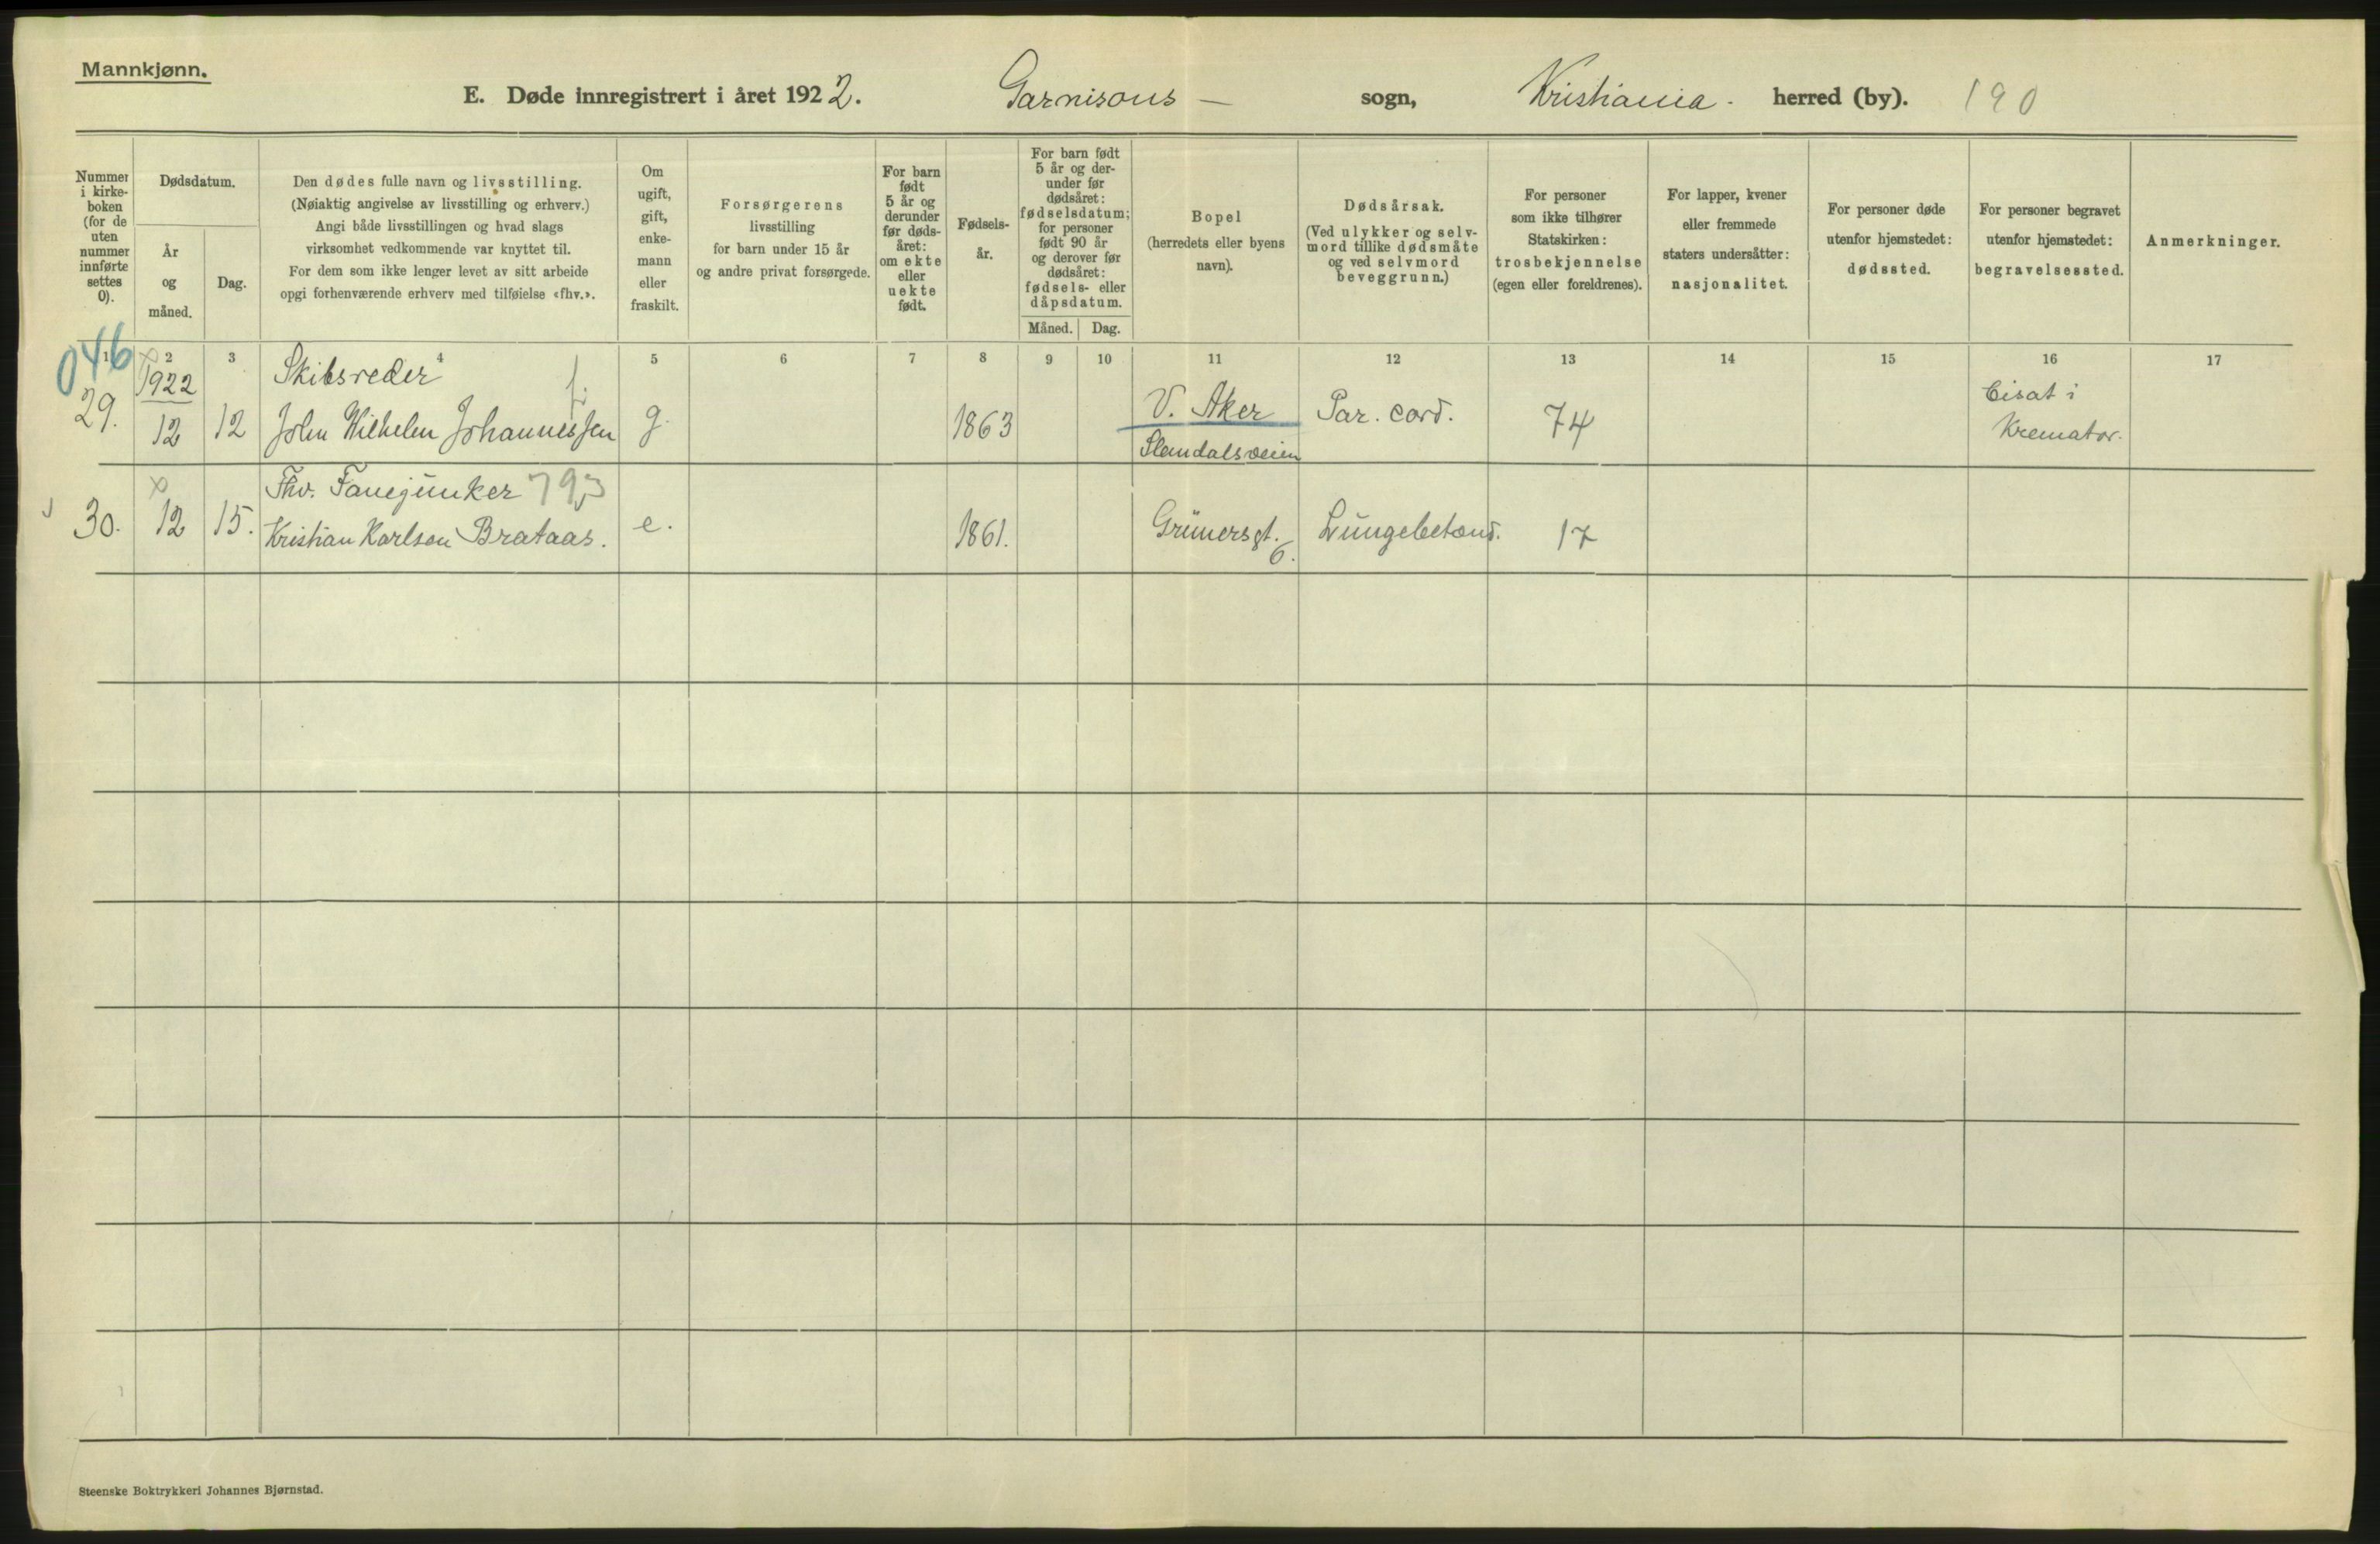 Mannkjønn.
E. Døde innregistrert i året 1922. Garnisons — sogn, Kristiania. herred (by). 190
Nummer
i kirke-
boken
(for de
uten
nummer
innførte
settes
0).
Dødsdatum.
År
og
måned.
Dag.
Den dødes fulle navn og livsstilling.
(Nøiaktig angivelse av livsstilling og erhverv.)
Angi både livsstillingen og hvad slags
virksomhet vedkommende var knyttet til.
For dem som ikke lenger levet av sitt arbeide
opgi forhenværende erhverv med tilføielse «fhv.».
Om
ugift,
gift,
enke-
mann
eller
fraskilt.
Forsørgerens
livsstilling
for barn under 15 år
og andre privat forsørgede.
For barn
født
5 år og
derunder
før døds-
året:
om ekte
eller
uekte
født.
Fødsels-
år.
For barn født
5 år og der-
under før
dødsåret:
fødselsdatum;
for personer
født 90 år
og derover før
dødsåret:
fødsels- eller
dåpsdatum.
Måned. Dag.
Bopel
(herredets eller byens
navn).
Dødsårsak.
(Ved ulykker og selv-
mord tillike dødsmåte
og ved selvmord
beveggrunn.)
For personer
som ikke tilhører
Statskirken:
trosbekjennelse
(egen eller foreldrenes).
For lapper, kvener
eller fremmede
staters undersåtter:
nasjonalitet.
For personer døde
utenfor hjemstedet:
dødssted.
For personer begravet
utenfor hjemstedet:
begravelsessted.
Anmerkninger.
1 2 3 4 5 6 7 8 9 10 11 12 13 14 15 16 17
046
1922 Skibsreder f.
29. 12 12 John Wilhelm Johannessen g. 1863 V. Aker Par. cord. 74 Bisat i
Slemdalsveien Kremator.
x Fhv. Fanejunker 793
30. 12 15. Kristian Karlsen Brataas. e. 1861. Grünersgt. Lungebetænd. 17
6.
Steenske Boktrykkeri Johannes Bjørnstad.